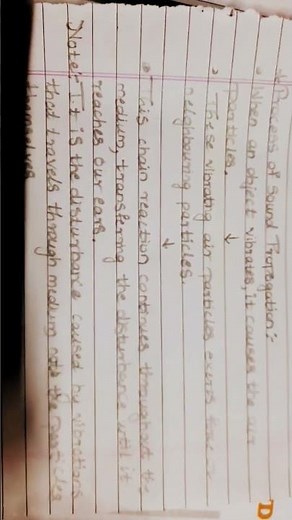 D
* Process of Sound Propagation:-
• When an object vibrates, it causes the air
particles.
↓
• These vibrating air particles exerts
neighbouring particles.
↓
• This chain reaction continues throughout the
medium, transferring the disturbance until it
reaches our ears.
Note:- It is the disturbance caused by vibrations
that travels through medium not the particles
themselves